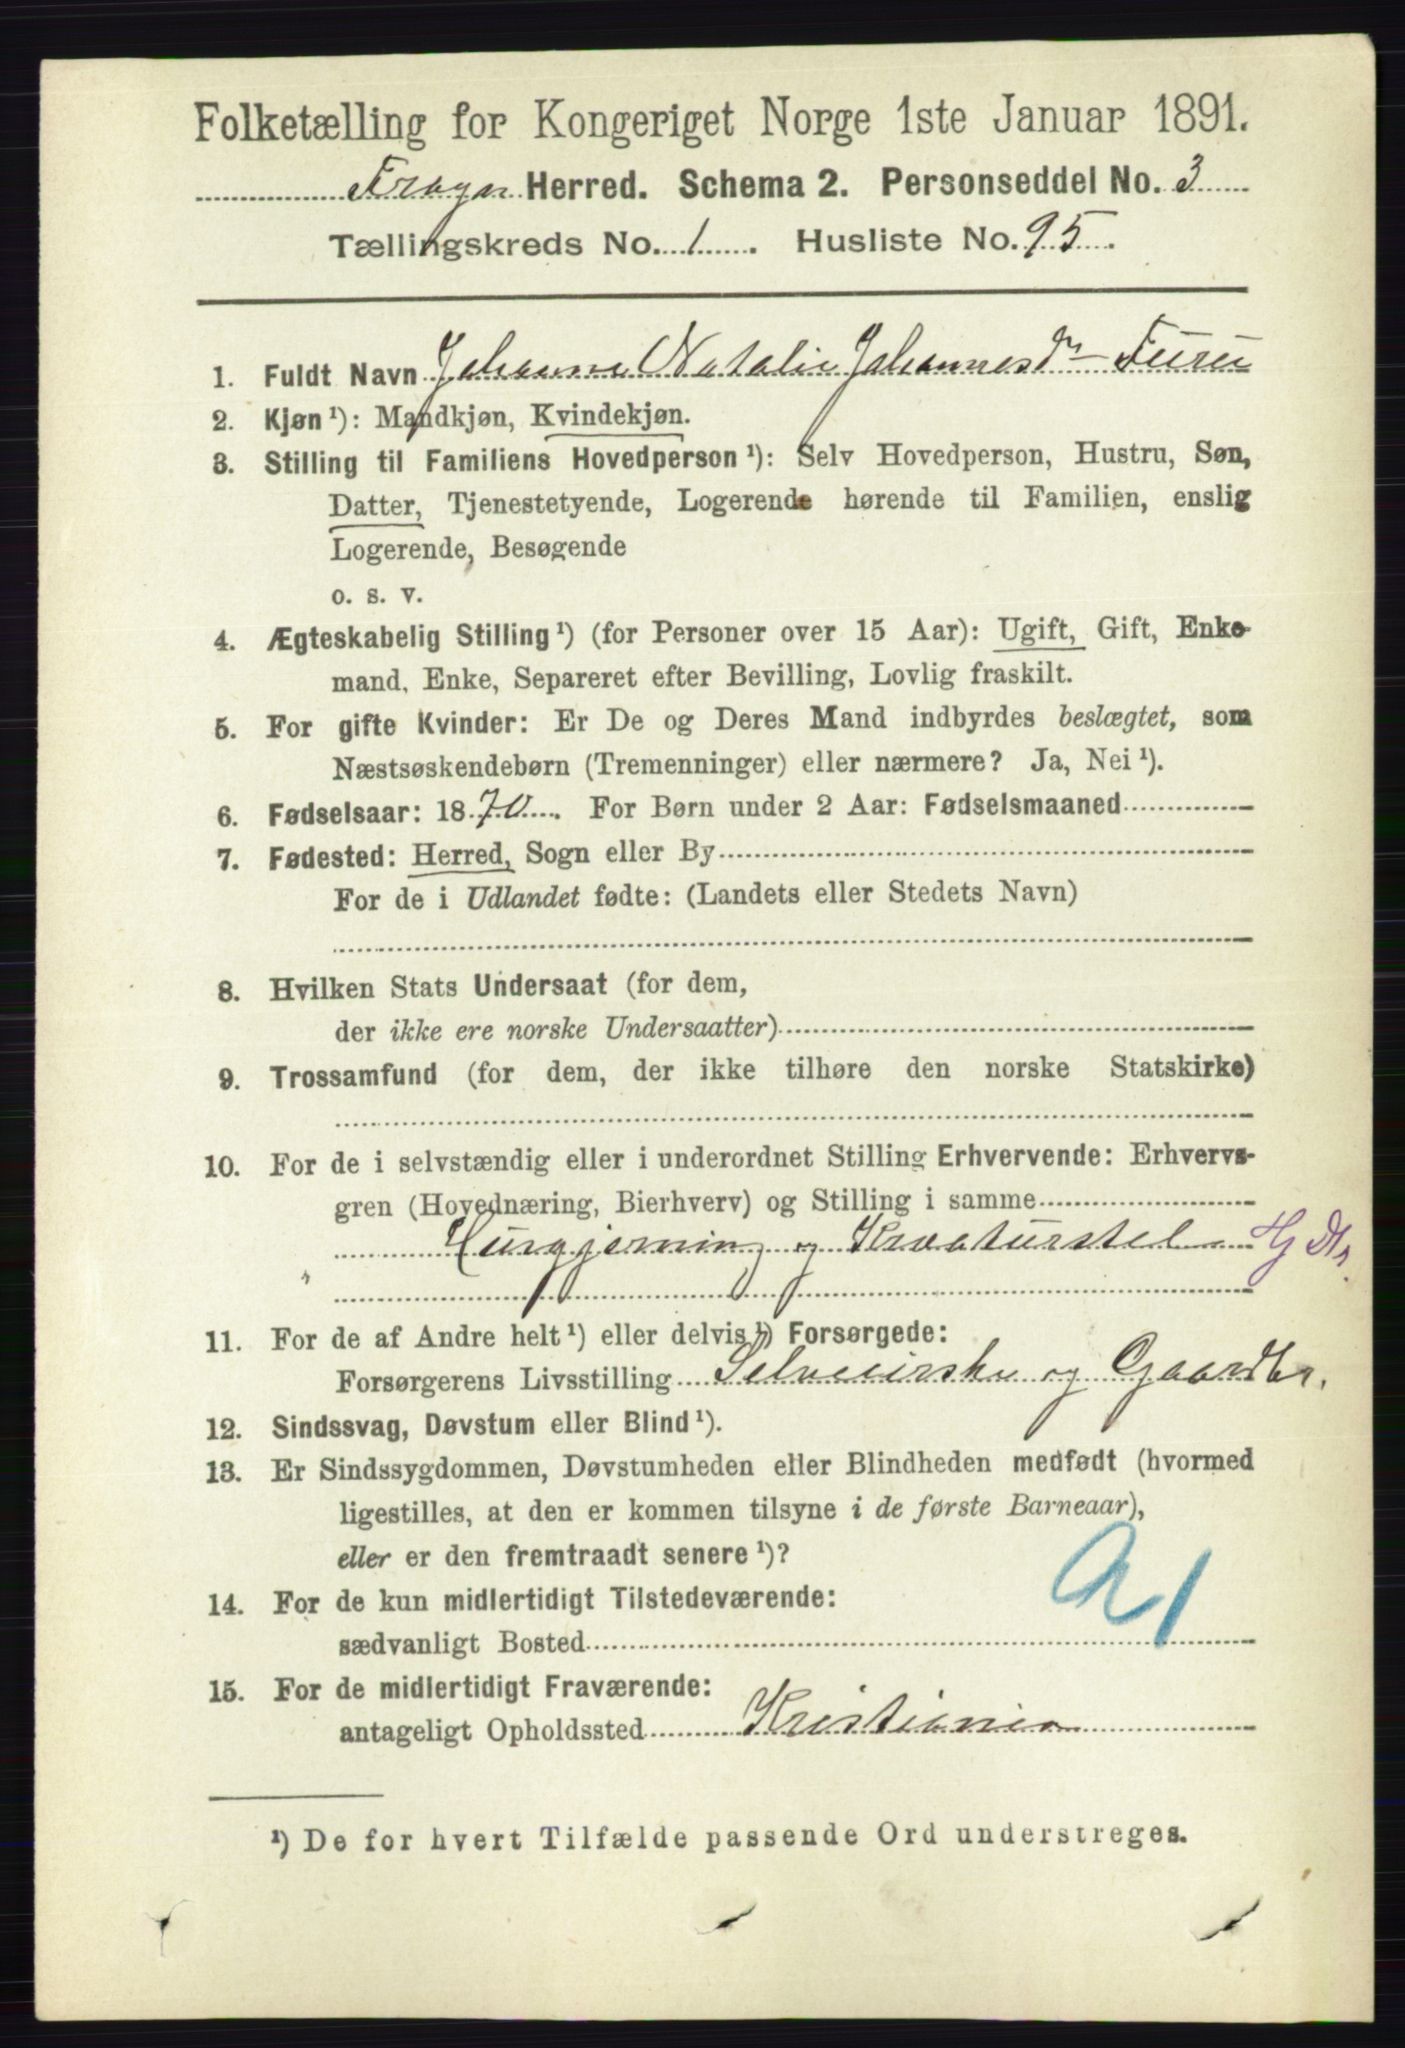 Folketælling for Kongeriget Norge 1ste Januar 1891.
Frogn Herred. Schema 2. Personseddel No. 3
Tællingskreds No. 1. Husliste No. 95.
1. Fuldt Navn Johanne Natalie Johannesdr Furu
2. Kjøn ¹): Mandkjøn, Kvindekjøn.
3. Stilling til Familiens Hovedperson ¹): Selv Hovedperson, Hustru, Søn,
Datter, Tjenestetyende, Logerende hørende til Familien, enslig
Logerende, Besøgende
o. s. v.
4. Ægteskabelig Stilling ¹) (for Personer over 15 Aar): Ugift, Gift, Enke-
mand, Enke, Separeret efter Bevilling, Lovlig fraskilt.
5. For gifte Kvinder: Er De og Deres Mand indbyrdes beslægtet, som
Næstsøskendebørn (Tremenninger) eller nærmere? Ja, Nei ¹).
6. Fødselsaar: 1870. For Børn under 2 Aar: Fødselsmaaned
7. Fødested: Herred, Sogn eller By
For de i Udlandet fødte: (Landets eller Stedets Navn)
8. Hvilken Stats Undersaat (for dem,
der ikke ere norske Undersaatter)
9. Trossamfund (for dem, der ikke tilhøre den norske Statskirke)
10. For de i selvstændig eller i underordnet Stilling Erhvervende: Erhvervs-
gren (Hovednæring, Bierhverv) og Stilling i samme
Husgjerning og Kreaturstel
11. For de af Andre helt ¹) eller delvis ¹) Forsørgede:
Forsørgerens Livsstilling Selveierske og Gaardbr.
12. Sindssvag, Døvstum eller Blind ¹).
13. Er Sindssygdommen, Døvstumheden eller Blindheden medfødt (hvormed
ligestilles, at den er kommen tilsyne i de første Barneaar),
eller er den fremtraadt senere ¹)?
14. For de kun midlertidigt Tilstedeværende:
sædvanligt Bosted
15. For de midlertidigt Fraværende:
antageligt Opholdssted Kristiania
¹) De for hvert Tilfælde passende Ord understreges.